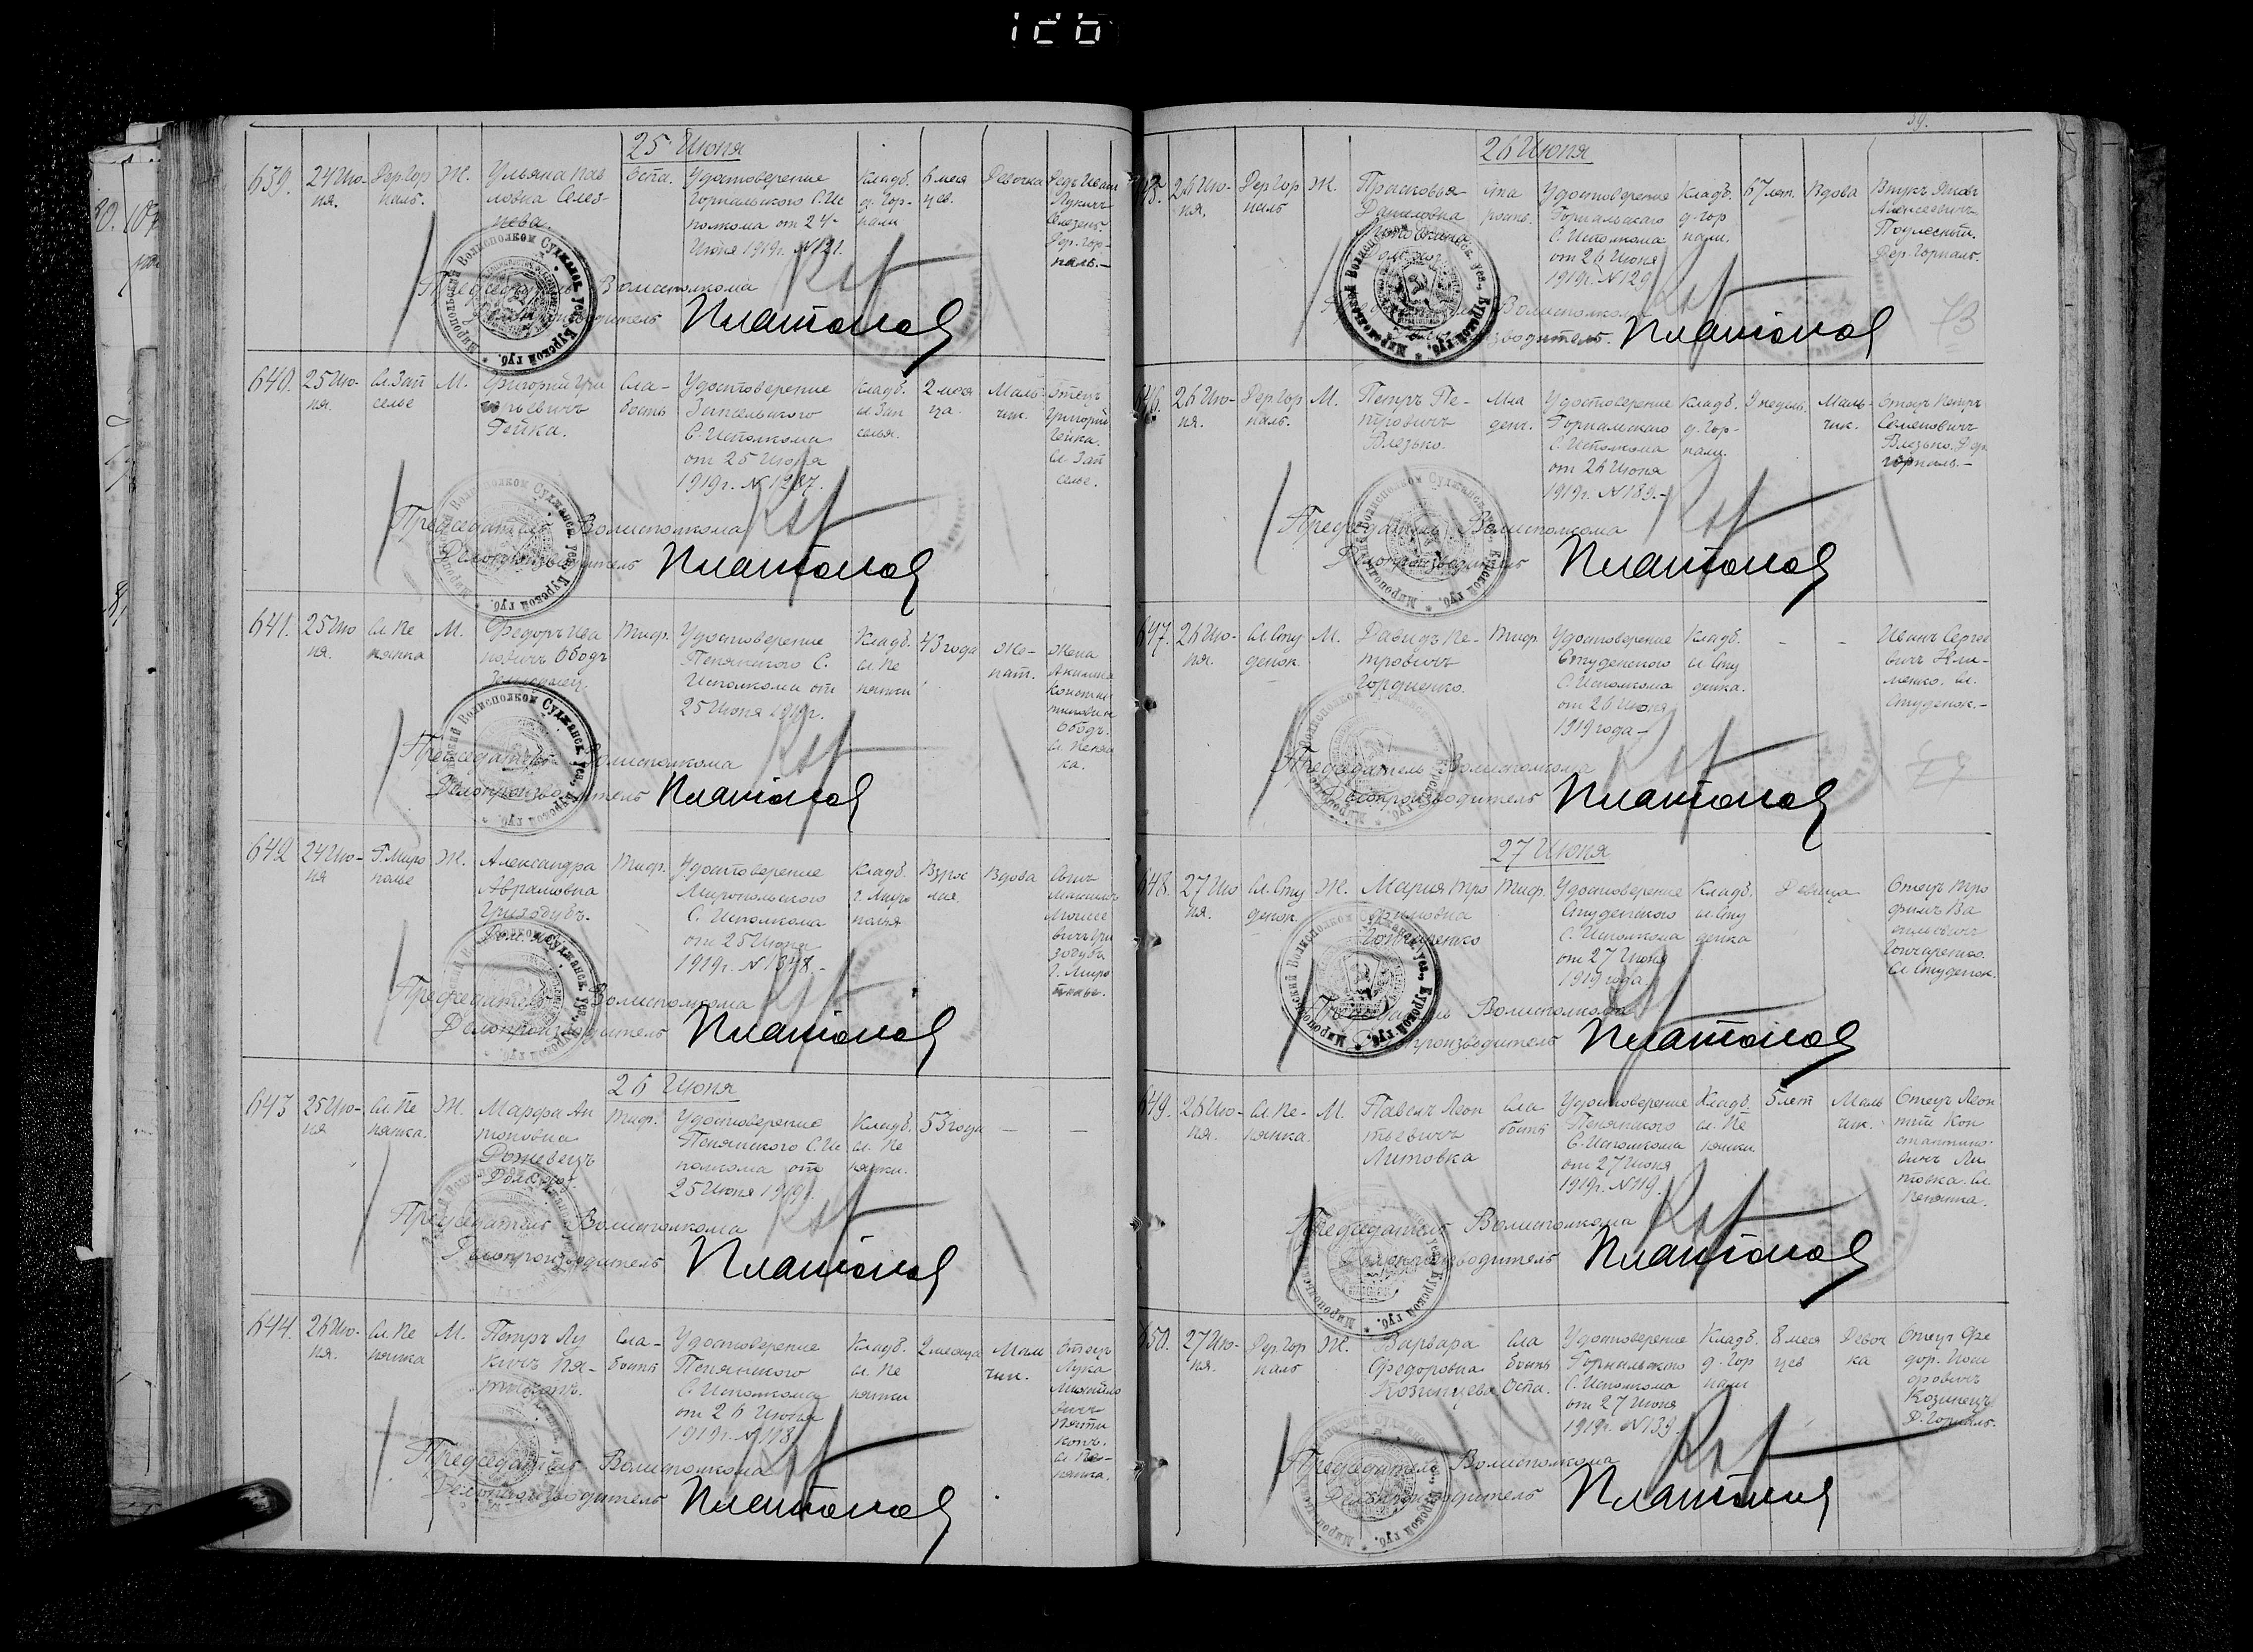 25 Июня
639. 24 Ию-
ня.
Дер. Гор
наль.
Ж.
Ульяна Пав
ловна Селез-
нева.
Оспа.
Удостоверение
Горнальского С. Ис
полкома от 24
Июня 1919 г. № 121.
Кладб.
д. Гор-
нали
6 меся
цев.
Девочка
Дер. Гор-
наль.-
Председатель Волисполкома
Делопроизводитель Платонов
640. 25 Ию-
ня.
Сл. Зап
селье
М.
Григорий Гри
горьевич
Гейка.
Сла-
бость
Удостоверение
Запсельского
С. Исполкома
от 25 Июня
1919 г. № 1287.
Кладб.
сл. Зап
селья.
2 меся
ца.
Маль-
чик.
Отец
Григорий
Гейка.
Сл. Зап
селье.
Председатель Волисполкома
Делопроизводитель Платонов
641. 25 Ию
ня.
Сл. Пе
нянка
М.
Федоръ Ива
новичъ
Тиф.
Удостоверение
Пенянского С.
Исполкома от
25 Июня 1919 г.
Кладб.
сл. Пе
нянки
43 года
Же-
нат.
Жена
Акилина
Констан
тиновна
сл. Пенян
ка.
Председатель Волисполкома
Делопроизводитель Платонов
642 24 Ию-
ня
Г. Миро
полье
Ж.
Александра
Аврамовна
Гризодубъ.
Тиф.
Удостоверение
Миропольского
С. Исполкома
от 25 Июня
1919 г. № 1348.-
Кладб.
г. Миро
полья
Взрос
лая.
Вдова
Сынъ
Моисе
вичъ Гри
зодубъ
г. Миро
полье.
Председатель Волисполкома
Делопроизводитель Платонов
26 Июня
643 25 Ию-
ня
Сл. Пе
нянка.
Ж.
Марфа Ан
тоновна
Тиф.
Удостоверение
Пенянского С. Ис
полкома от
25 Июня 1919 г.
Кладб.
сл. Пе
нянки.
53 года
—
—
Председатель Волисполкома
Делопроизводитель Платонов
644. 26 Ию-
ня.
Сл. Пе
нянка
М.
Петръ Лу
кичъ Пя-
Сла-
бость
Удостоверение
Пенянского
С. Исполкома
от 26 Июня
1919 г. № 118
Кладб.
сл. Пе
нянки
2 месяца
Маль
чик.
Отец
Лука
сл. Пе-
нянка.
Председатель Волисполкома
Делопроизводитель Платонов
59.
26 Июня
645. 26 Ию-
ня.
Дер. Гор
наль
Ж.
Прасковья
Даниловна
Ста
рость.
Удостоверение
Горнальского
С. Исполкома
от 26 Июня
1919 г. № 129
Кладб.
д. Гор
нали.
67 лет.
Вдова
Внукъ Яковъ
Алексеевичъ
Дер. Горналь.
Волисполкома
Делопроизводитель. Платонов
73
646. 26 Ию-
ня.
Дер. Гор
наль.
М.
Петръ Пе-
тровичъ
Влезько.
Мла
ден.
Удостоверение
Горнальского
С. Исполкома
от 26 Июня
1919 г. № 189.-
Кладб.
д. Гор-
нали.
3 недели.
Маль-
чик.
Отецъ Петръ
Семеновичъ
Влезько. Дер.
Горналь.-
Председатель Волисполкома
Делопроизводитель Платонов
647. 26 Ию-
ня.
Сл. Сту
денок.
М.
Давидъ Пе-
тровичъ
Гордиенко.
Тиф.
Удостоверение
Студенского
С. Исполкома
от 26 Июня
1919 года –
Кладб.
сл. Сту
денка.
–
–
Иванъ Серге
вичъ Кли-
менко. Сл.
Студенок.-
Председатель Волисполкома
Делопроизводитель Платонов
27 Июня
648. 27 Ию
ня.
Сл. Сту
денок.
Ж.
Мария Тро
фимовна
Гончаренко
Тиф.
Удостоверение
Студенского
С. Исполкома
от 27 Июня
1919 года
Кладб.
сл. Сту
денка
Девица
Отецъ Тро
фимъ Ва
сильевич
Гончаренко.
Сл. Студенок.
Председатель Волисполкома
Делопроизводитель Платонов
649. 26 Ию-
ня.
Сл. Пе-
нянка.
М.
Павелъ Леон
тьевичъ
Литовка
Сла
бость
Удостоверение
Пенянского
С. Исполкома
от 27 Июня
1919 г. № 119.
Кладб.
сл. Пе
нянки
5 лет
Маль
чик.
Отецъ Леон
тий Кон
стантино-
вичъ Ли
товка. Сл.
Пенянка.
Председатель Волисполкома
Делопроизводитель Платонов
650. 27 Ию-
ня.
Дер. Гор
наль
Ж.
Варвара
Федоровна
Козинцева
Сла
бость
Оспа.
Удостоверение
Горнальского
С. Исполкома
от 27 Июня
1919 г. № 139.
Кладб.
д. Гор
нали
8 меся
цев
Девоч
ка
Отецъ Фе
дор.
Козинецъ
Д. Горналь.
Председатель Волисполкома
Делопроизводитель Платонов